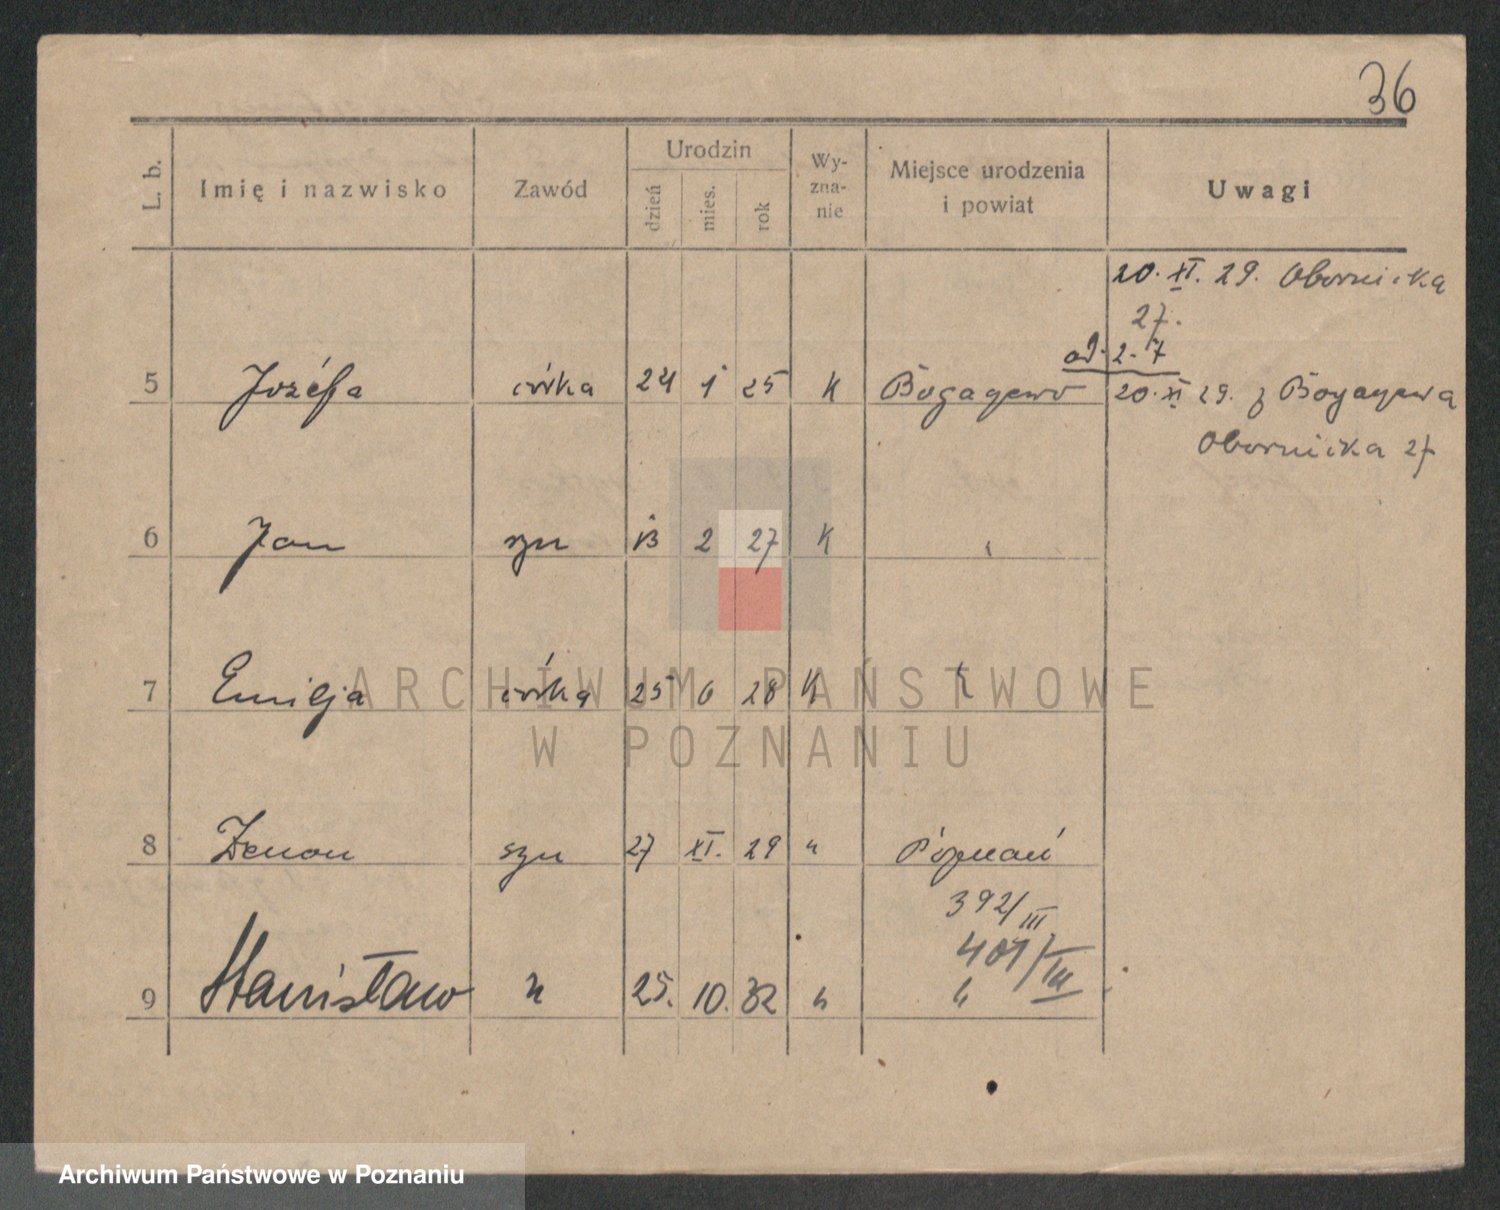 36
L. b. Imię i nazwisko Zawód Urodzin dzień mies. rok Wy-zna-nie Miejsce urodzenia i powiat Uwagi
20. XI. 29. Obornicka
27.
od. 2. 7
5 Józefa córka 24 1 25 K 20. XI 29. z
Obornicka 27
6 Jan syn 13 2 27 K "
7 Emilja córka 25 6 28 K "
8 Zenon syn 27 XI. 29 " Poznań
392/III
401/III
9 Stanisław " 25. 10. 32 " "
ARCHIWUM PAŃSTWOWE
W POZNANIU
Archiwum Państwowe w Poznaniu